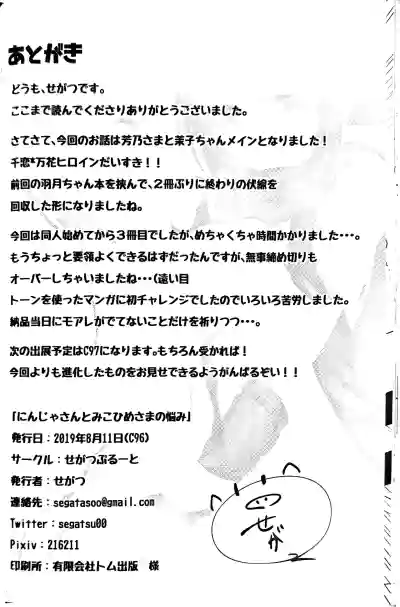 あとがき
どうも、せがつです。
ここまで読んでくださりありがとうございました。
さてさて、今回のお話は芳乃さまと茉子ちゃんメインとなりました!
千恋*万花ヒロインだいすき!!
前回の羽月ちゃん本を挟んで、2冊ぶりに終わりの伏線を
回収した形になりましたね。
今回は同人始めてから3冊目でしたが、めちゃくちゃ時間かかりました・・・。
もうちょっと要領よくできるはずだったんですが、無事締め切りも
オーバーしちゃいましたね・・・(遠い目
トーンを使ったマンガに初チャレンジでしたのでいろいろ苦労しました。
納品当日にモアレがでてないことだけを祈りつつ・・・。
次の出展予定はC97になります。もちろん受かれば!
今回よりも進化したものをお見せできるようがんばるぞい!!
「にんじゃさんとみこひめさまの悩み」
発行日:2019年8月11日(C96)
サークル:せがつぶるーと
発行者:せがつ
連絡先:segatasoo@gmail.com
Twitter:segatsu00
Pixiv:216211
印刷所:有限会社トム出版 様
せがつ